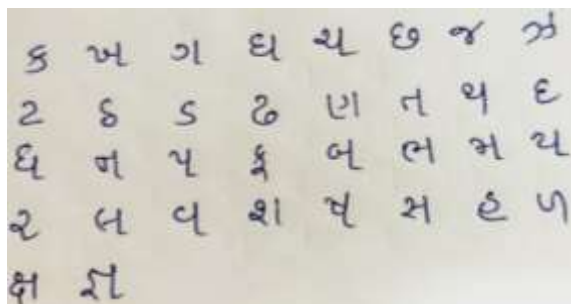 ક ખ ગ ઘ ચ છ જ ઝ
ટ ઠ ડ ઢ ણ ત થ દ
ધ ન પ ફ બ ભ મ ય
ર લ વ શ ષ સ હ ળ
ક્ષ જ્ઞ